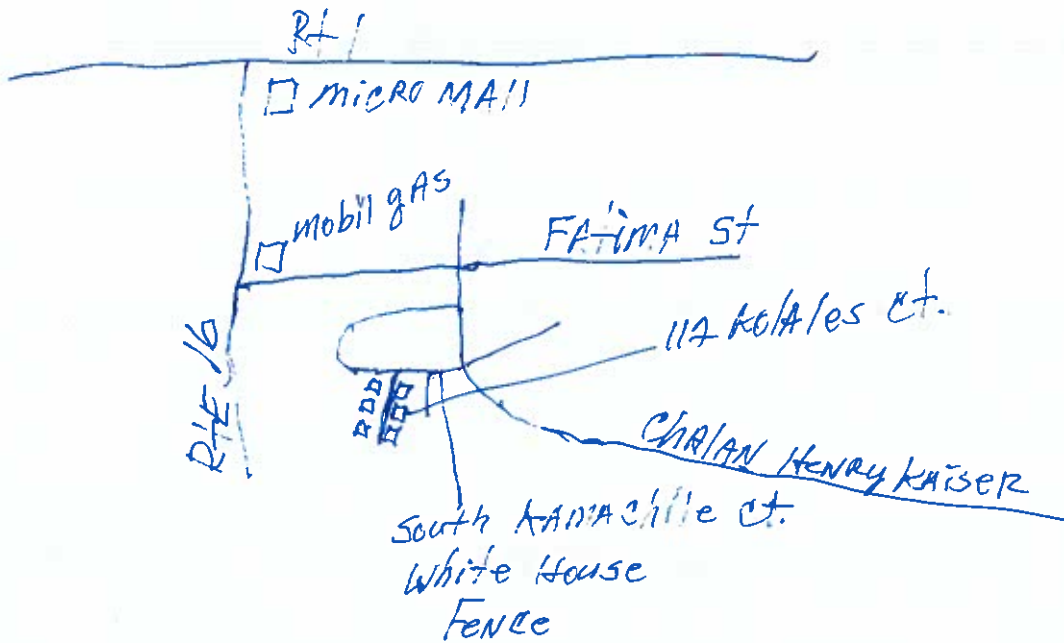 Rt 1
MiCRO MAll
mobil gAs
FAtiMA St
RtE 16
112 KolAles Ct.
ChAlAN HENRy KAiSER
South KAMAChile Ct.
White House
FeNCe